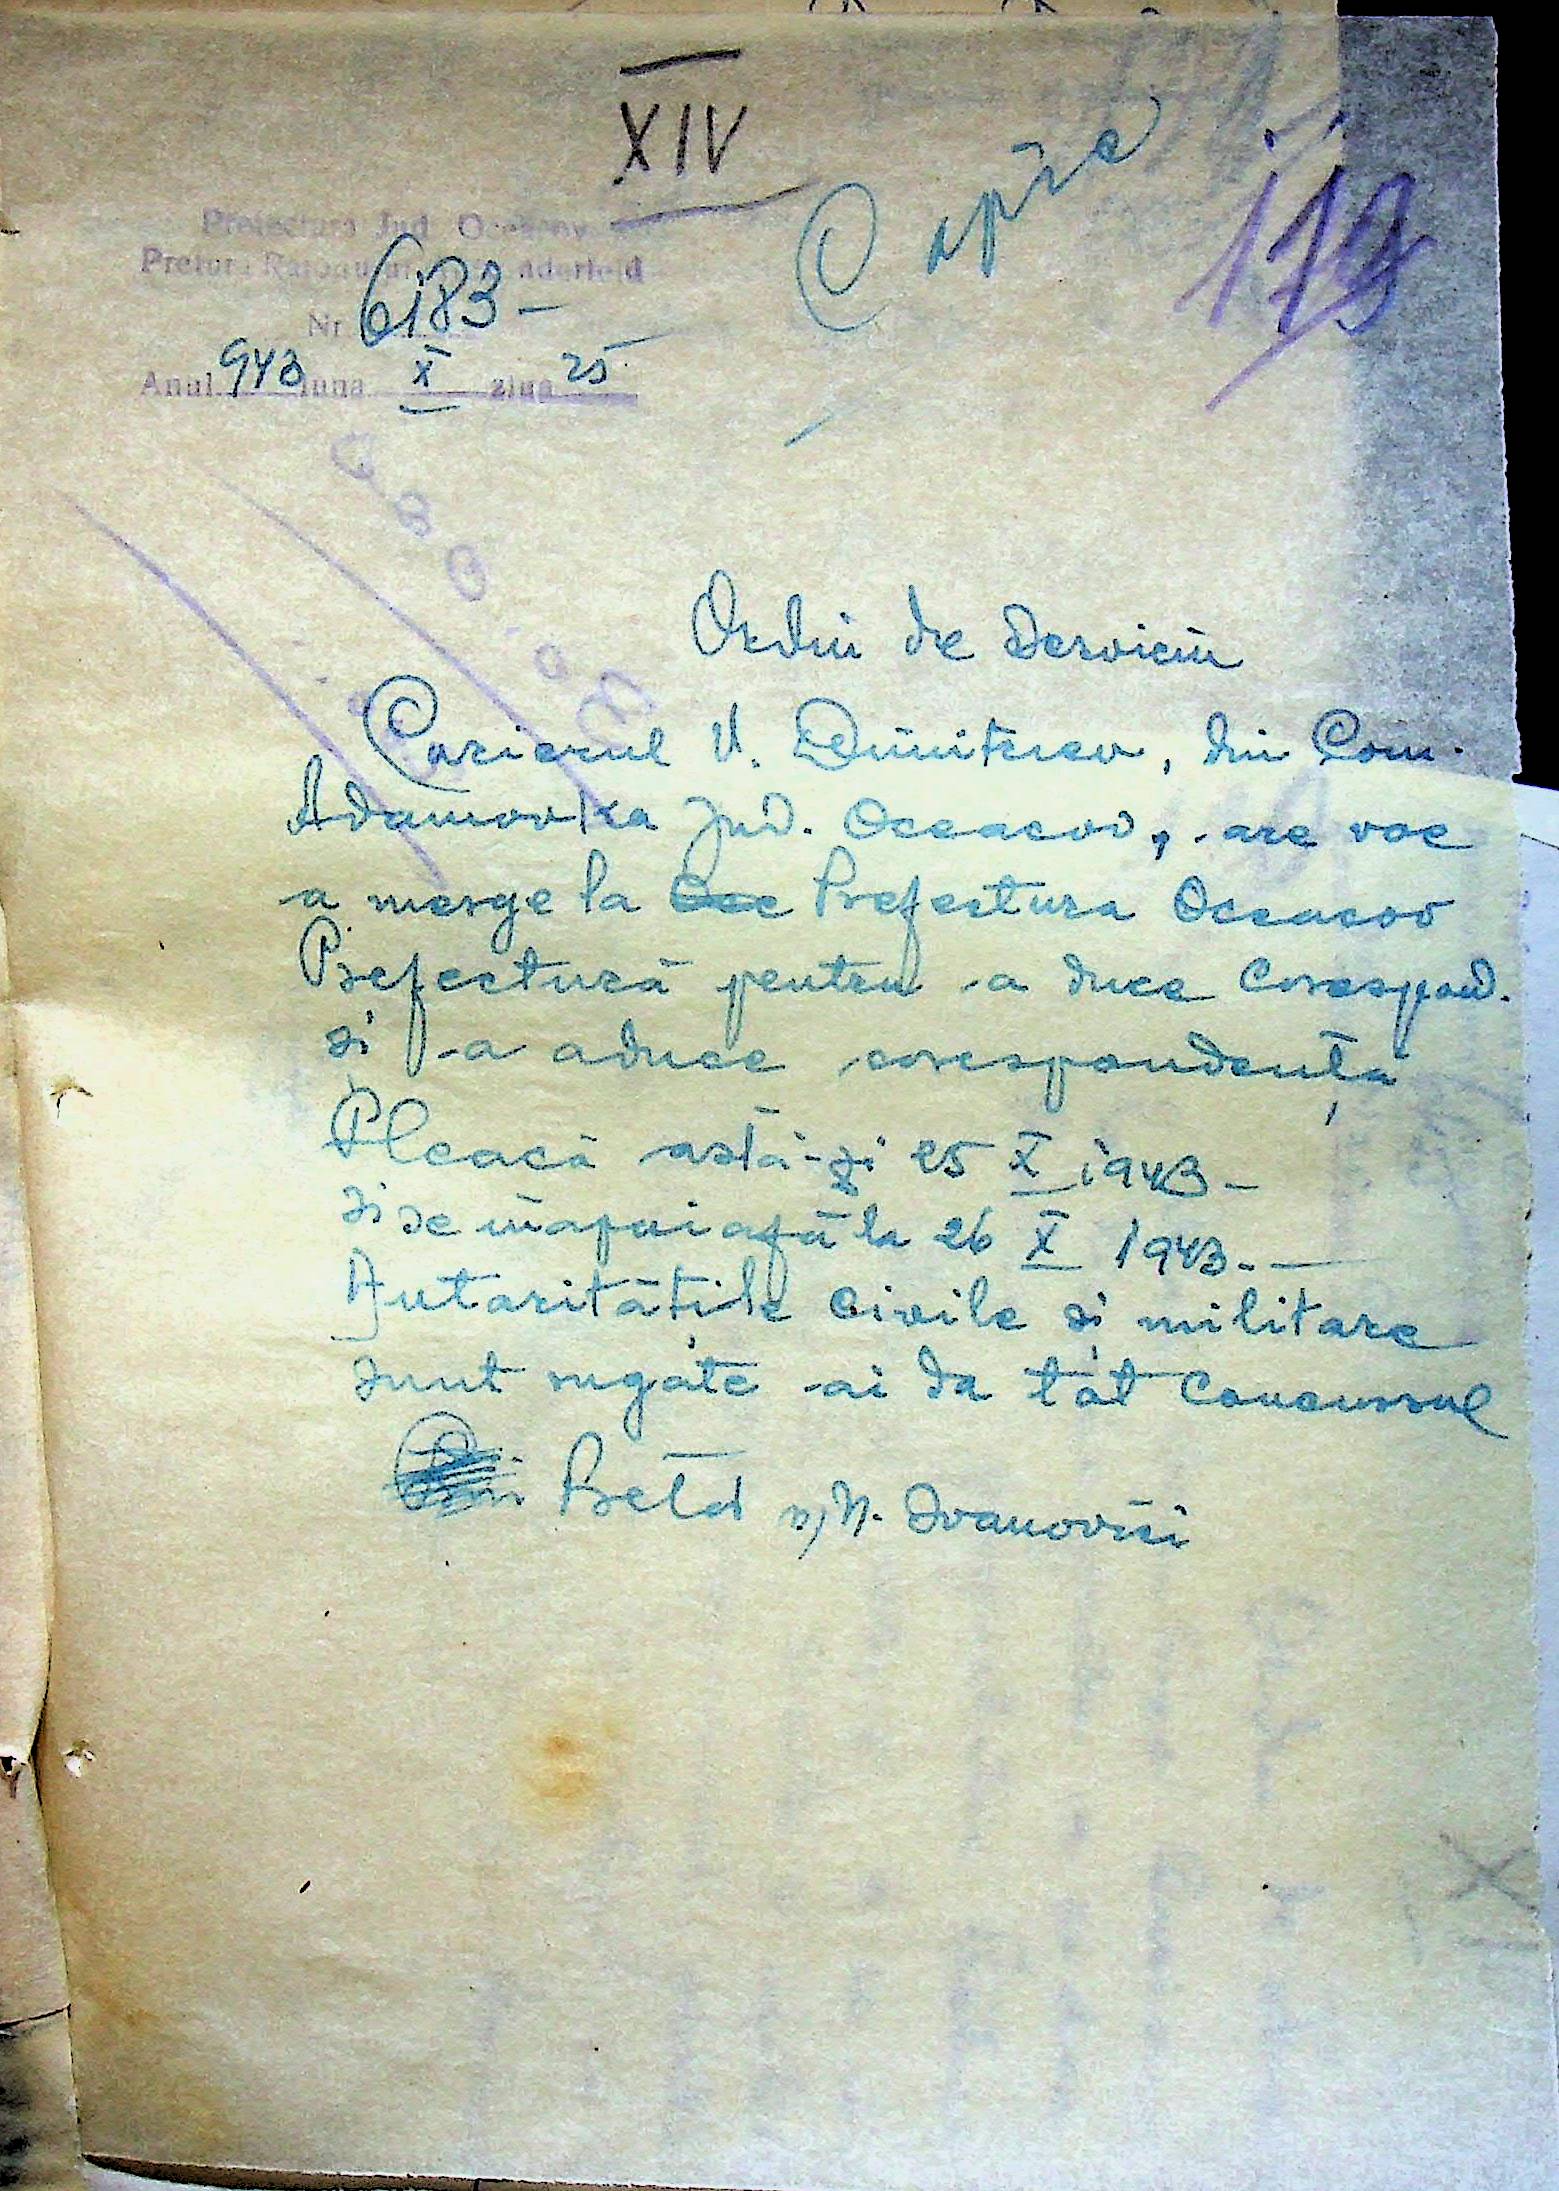 XIV
Copie
179
Prefectura Jud. Oceacov
Pretura Raionului
Nr 6183 -
Anul 943 luna X ziua 25
Ordin de Serviciu
Curierul V. Dimitriev, din Com.
Adamovka Jud. Oceacov, are voe
a merge la Prefectura Oceacov
Prefectură pentru a duce Corespond.
si a aduce corespondență
Pleacă astă-zi 25 X 1943 -
si se înapoiază la 26 X 1943. -
Autoritățile civile și militare
sunt rugate ai da tot Concursul
Pretor N. Ivanovici